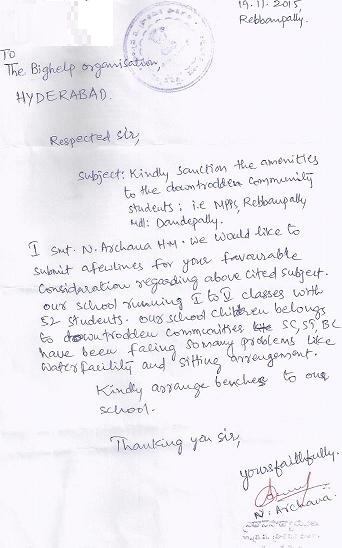 19.11.2015,
Rebbanpally.
To
The Bighelp organisation,
HYDERABAD.
Respected Sir,
Subject: Kindly sanction the amenities
to the downtrodden community
students : i.e MPPS, Rebbanpally
Mdl: Dandepally.
I Smt. N. Archana HM. We would like to
submit afewlines for your favourable
Consideration regarding above cited subject.
our school running I to V classes with
52 students. our school children belongs
to downtrodden communities SC, ST, BC
have been facing so many problems like
water facility and sitting arrengement.
Kindly arrange benches to our
school.
Thanking you sir,
yours faithfully.
N. Archana.